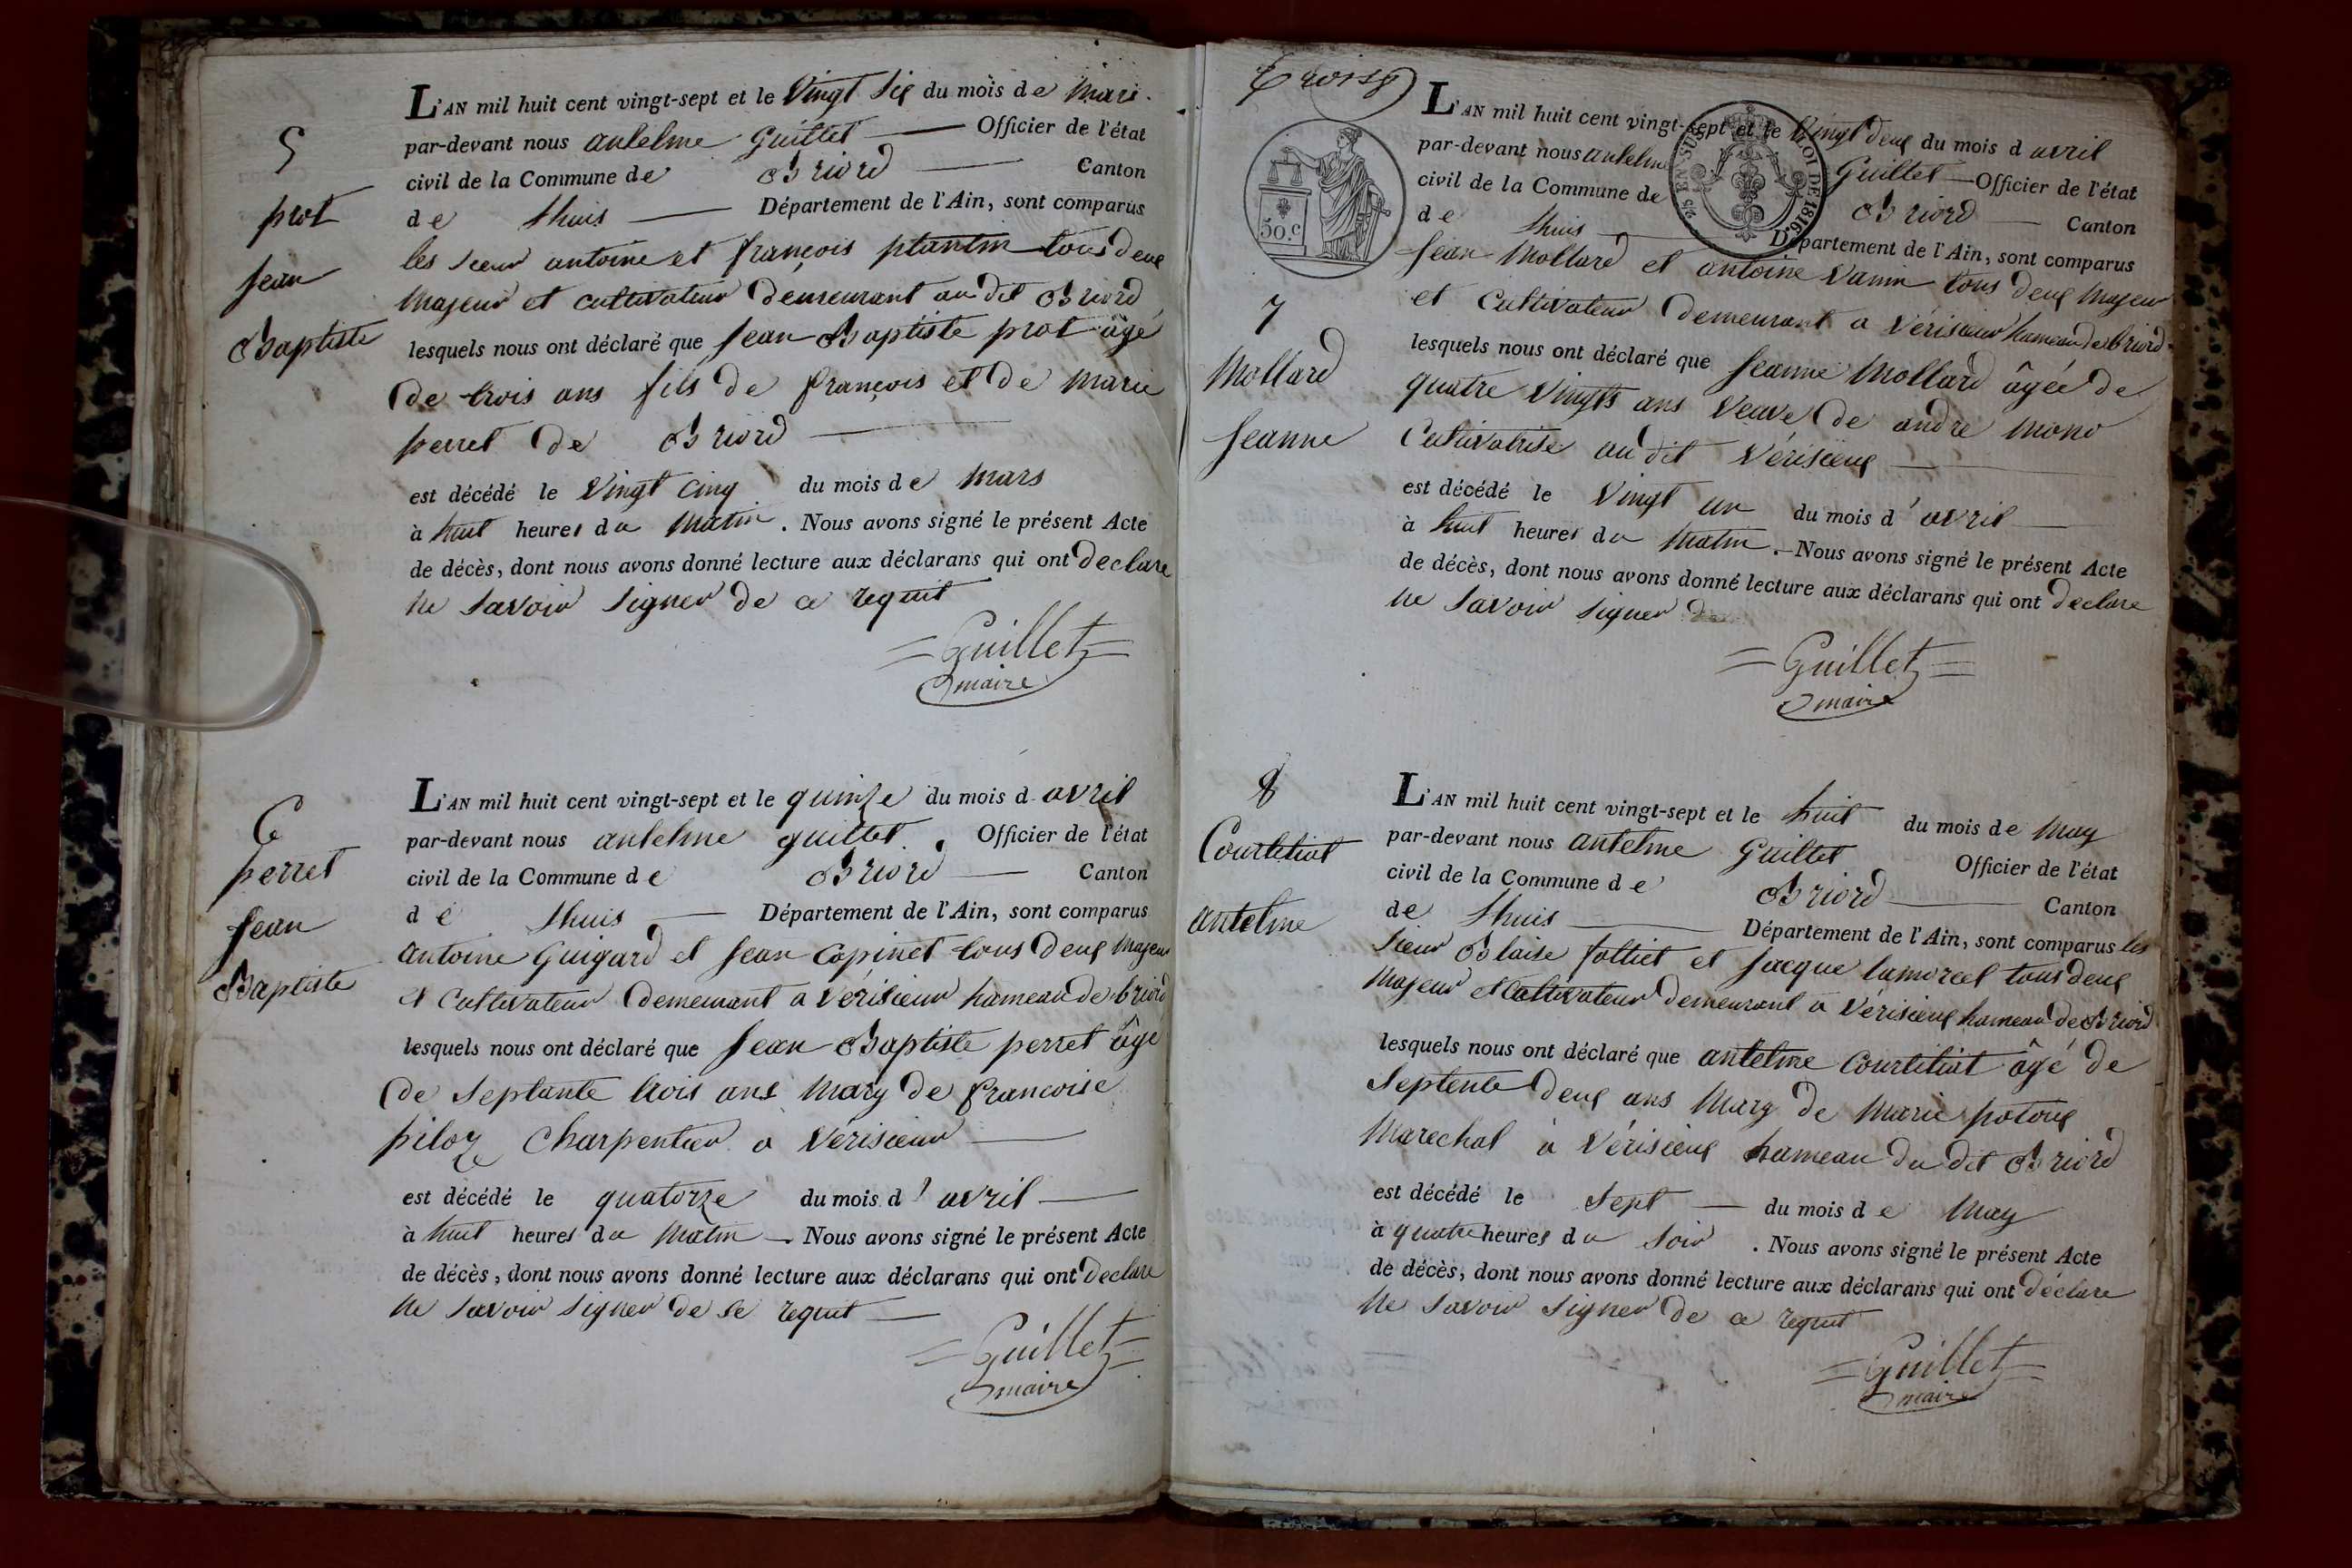 5
prot
jean
Baptiste
L'AN mil huit cent vingt-sept et le vingt six du mois de mars
par-devant nous antelme Guillet Officier de l'état
civil de la Commune de Briord Canton
de lhuis Département de l'Ain, sont comparus
les sieur antoine et françois plantin tous deux
majeur et cultivateur demeurant au dit Briord
lesquels nous ont déclaré que jean Baptiste prot âgé
de trois ans fils de françois et de marie
perret de Briord
est décédé le vingt cinq du mois de mars
à huit heures du matin. Nous avons signé le présent Acte
de décès, dont nous avons donné lecture aux déclarans qui ont declare
ne savoir signer de ce requit
Guillet
maire
6
perret
jean
Baptiste
L'AN mil huit cent vingt-sept et le quinze du mois d avril
par-devant nous antelme guillet. Officier de l'état
civil de la Commune de Briord Canton
de lhuis Département de l'Ain, sont comparus
antoine Guigard et jean Copinet tous deux majeur
et cultivateur demeurant a vérisieur hameau de briord
lesquels nous ont déclaré que jean Baptiste perret âgé
de septante trois ans mary de francoise
piloz charpentier a vérisieur
est décédé le quatorze du mois d'avril
à huit heures du matin Nous avons signé le présent Acte
de décès, dont nous avons donné lecture aux déclarans qui ont declare
ne savoir signer de se requit
Guillet
maire
trois
50.c
2/5 EN SUS
LOI DE 1816.
7
Mollard
jeanne
L'AN mil huit cent vingt-sept et le vingt deux du mois d avril
par-devant nous antelme Guillet Officier de l'état
civil de la Commune de Briord Canton
de lhuis Département de l'Ain, sont comparus
jean Mollard et antoine vanin tous deux majeur
et cultivateur demeurant a vérisieur hameau de briord
lesquels nous ont déclaré que jeanne Mollard âgée de
quatre vingts ans veuve de andré mono
cultivatrise au dit vérisieux
est décédé le vingt un du mois d'avril
à huit heures du matin. Nous avons signé le présent Acte
de décès, dont nous avons donné lecture aux déclarans qui ont declare
ne savoir signer de
Guillet
maire
8
Courtitiat
antelme
L'AN mil huit cent vingt-sept et le huit du mois de may
par-devant nous antelme Guillet Officier de l'état
civil de la Commune de Briord Canton
de lhuis Département de l'Ain, sont comparus les
sieur Blaise folliet et jacque lamorcel tous deux
majeur et cultivateur demeurant a vérisieux hameau de Briord
lesquels nous ont déclaré que antelme Courtitiat âgé de
septente deux ans mary de marie potoux
marechal à vérisieux hameau du dit Briord
est décédé le sept du mois de may
à quatre heures du soir. Nous avons signé le présent Acte
de décès, dont nous avons donné lecture aux déclarans qui ont déclare
ne savoir signer de ce requit
Guillet
maire